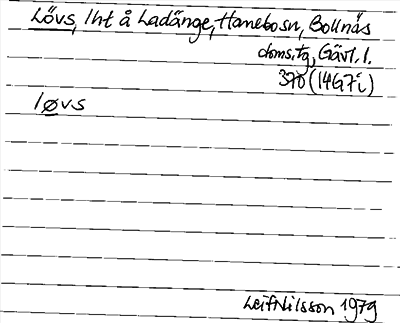 Lövs, lht å Ladänge, Hanebosn, Bollnäs
doms.tg, Gävl. l.
370 (14G7i)
løvs
Leif Nilsson 1979